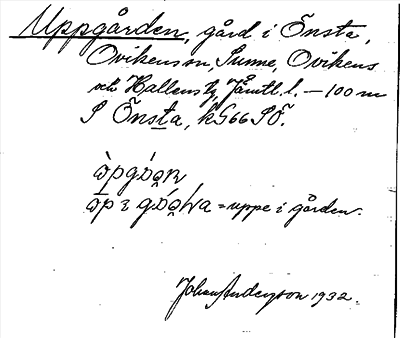 Uppgården, gård i Önsta,
Ovikens sn, Sunne, Ovikens
och Hallens tg, Jämtl. l. — 100 m
S Önsta, k 566 SÖ.
= uppe i gården.
Johan Anderson 1932.